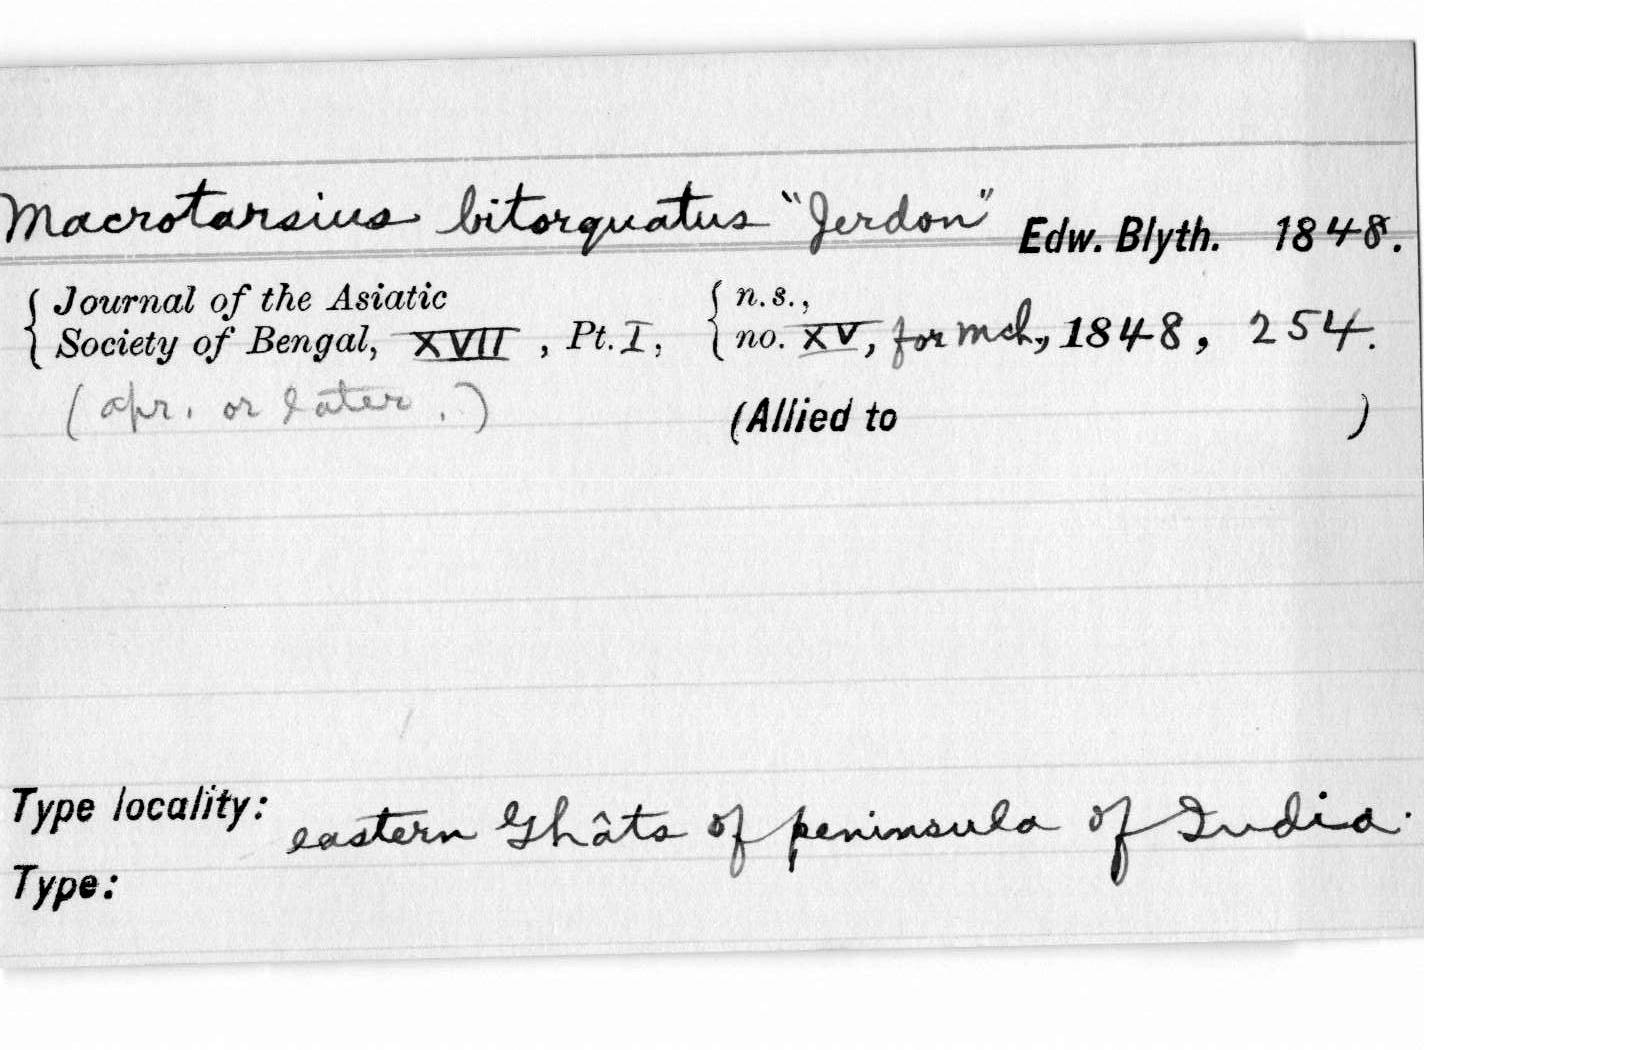 Macrotarsius bitorquatus "Jerdon" Edw. Blyth. 1848.
{ Journal of the Asiatic { n.s.,
{ Society of Bengal, XVII , Pt. I, { no. XV, for Mch., 1848, 254.
(Apr. or later.) (Allied to )
Type locality: eastern Ghâts of peninsula of India.
Type: